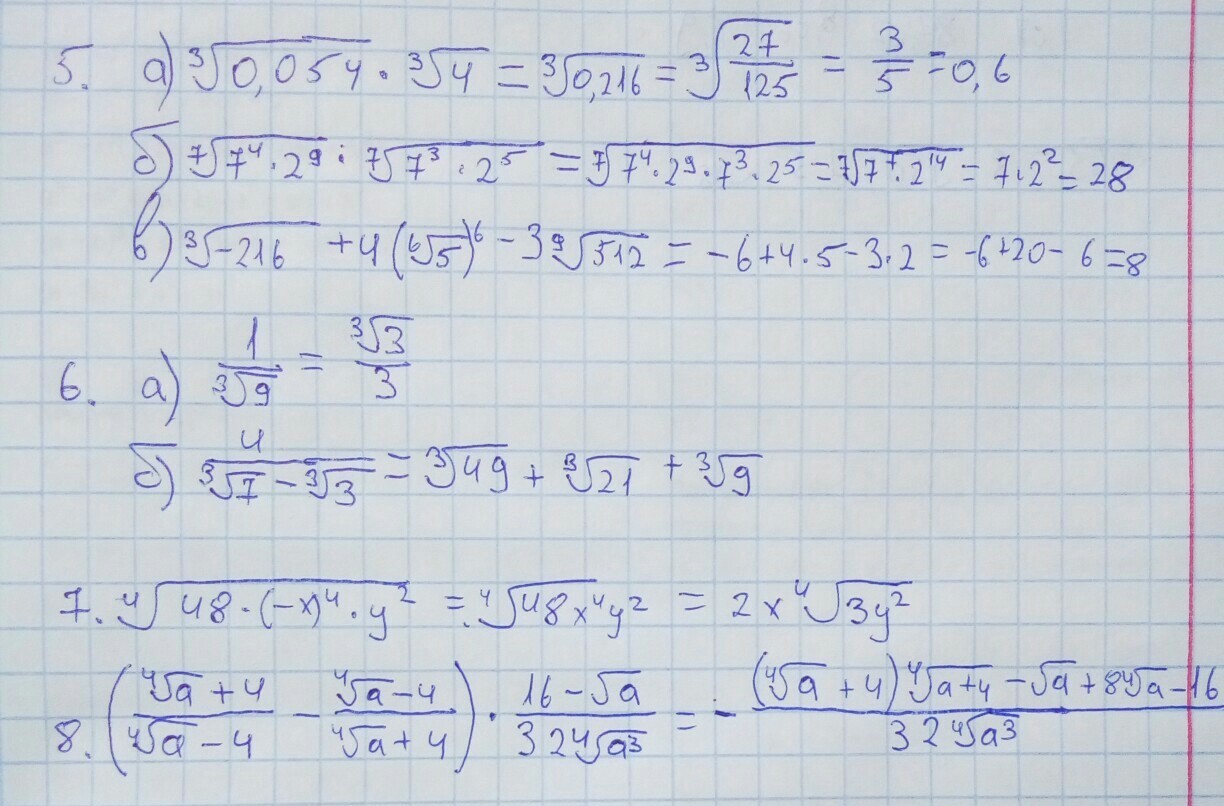 5. а) ∛0,054 · ∛4 = ∛0,216 = ∛(27/125) = 3/5 = 0,6
б) ⁷√(7⁴·2⁹) · ⁷√(7³·2⁵) = ⁷√(7⁴·2⁹·7³·2⁵) = ⁷√(7⁷·2¹⁴) = 7·2² = 28
в) ∛(-216) + 4(⁶√5)⁶ - 3⁹√512 = -6+4·5-3·2 = -6+20-6=8
6. а) 1/∛9 = ∛3/3
б) 4/(∛7 - ∛3) = ∛49 + ∛21 + ∛9
7. ⁴√(48·(-x)⁴·y²) = ⁴√(48x⁴y²) = 2x⁴√(3y²)
8. ((⁴√a + 4)/(⁴√a - 4) - (⁴√a - 4)/(⁴√a + 4)) · (16 - √a)/(32⁴√a³) = - ((⁴√a + 4)⁴√(a+4) - √a + 8⁴√a - 16)/(32⁴√a³)